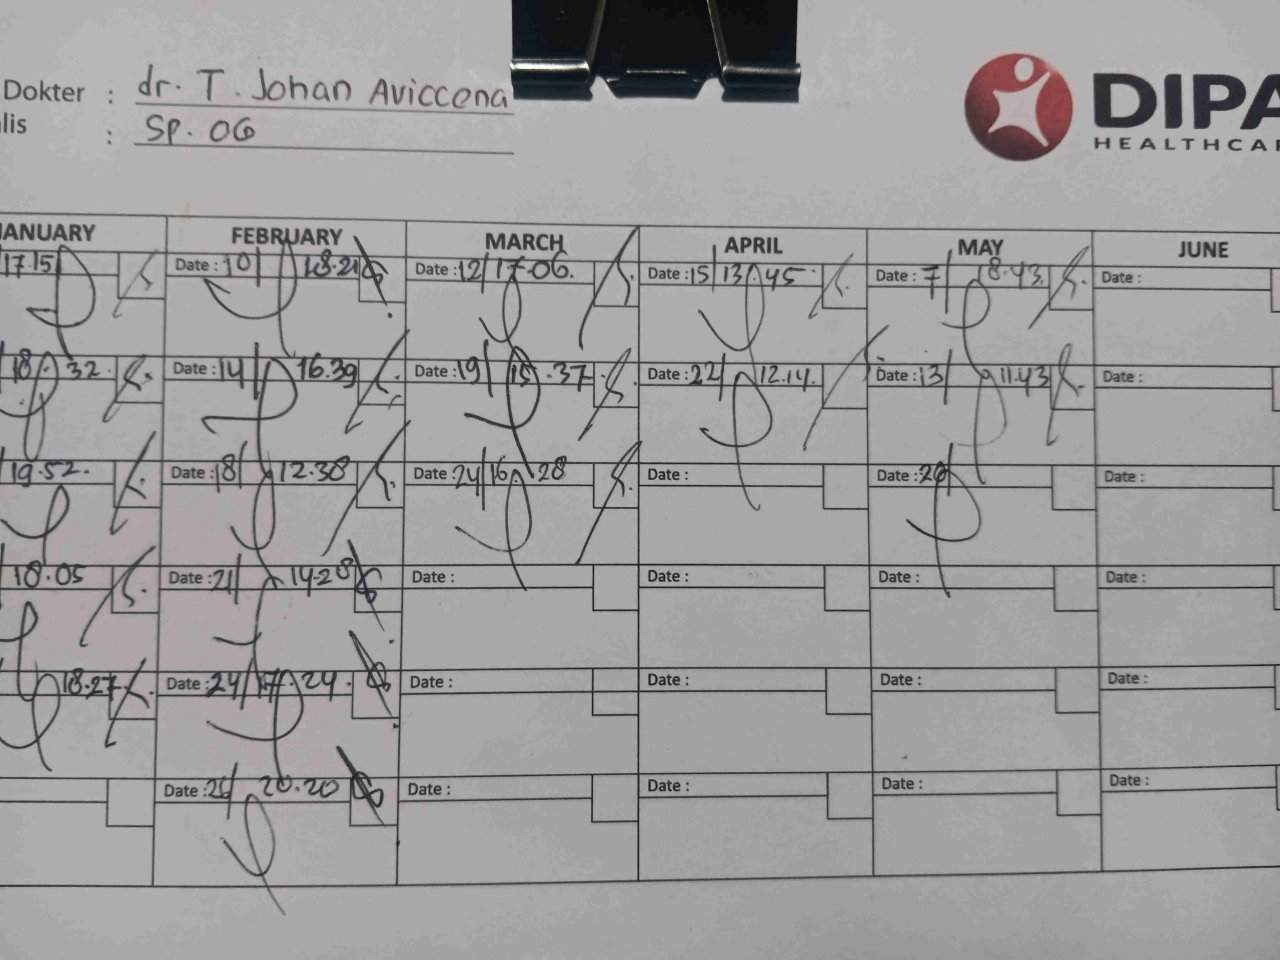 Dokter : dr. T. Johan Aviccena
lis : Sp. OG
DIPA
HEALTHCAR
ANUARY FEBRUARY MARCH APRIL MAY JUNE
17.15 Date : 10/ 18.21 Date : 12/ 17.06. Date : 15/ 13.45 Date : 7/ 18.43. Date :
18. 32. Date : 14/ 16.39 Date : 19/ 15.37 Date : 22/ 12.14. Date : 13/ 11.43 Date :
19.52. Date : 18/ 12.38 Date : 24/ 16.28 Date : Date : 20/ Date :
18.05 Date : 21/ 14.28 Date : Date : Date : Date :
18.27 Date : 24/ 17.24. Date : Date : Date : Date :
Date : 26/ 20.20 Date : Date : Date : Date :